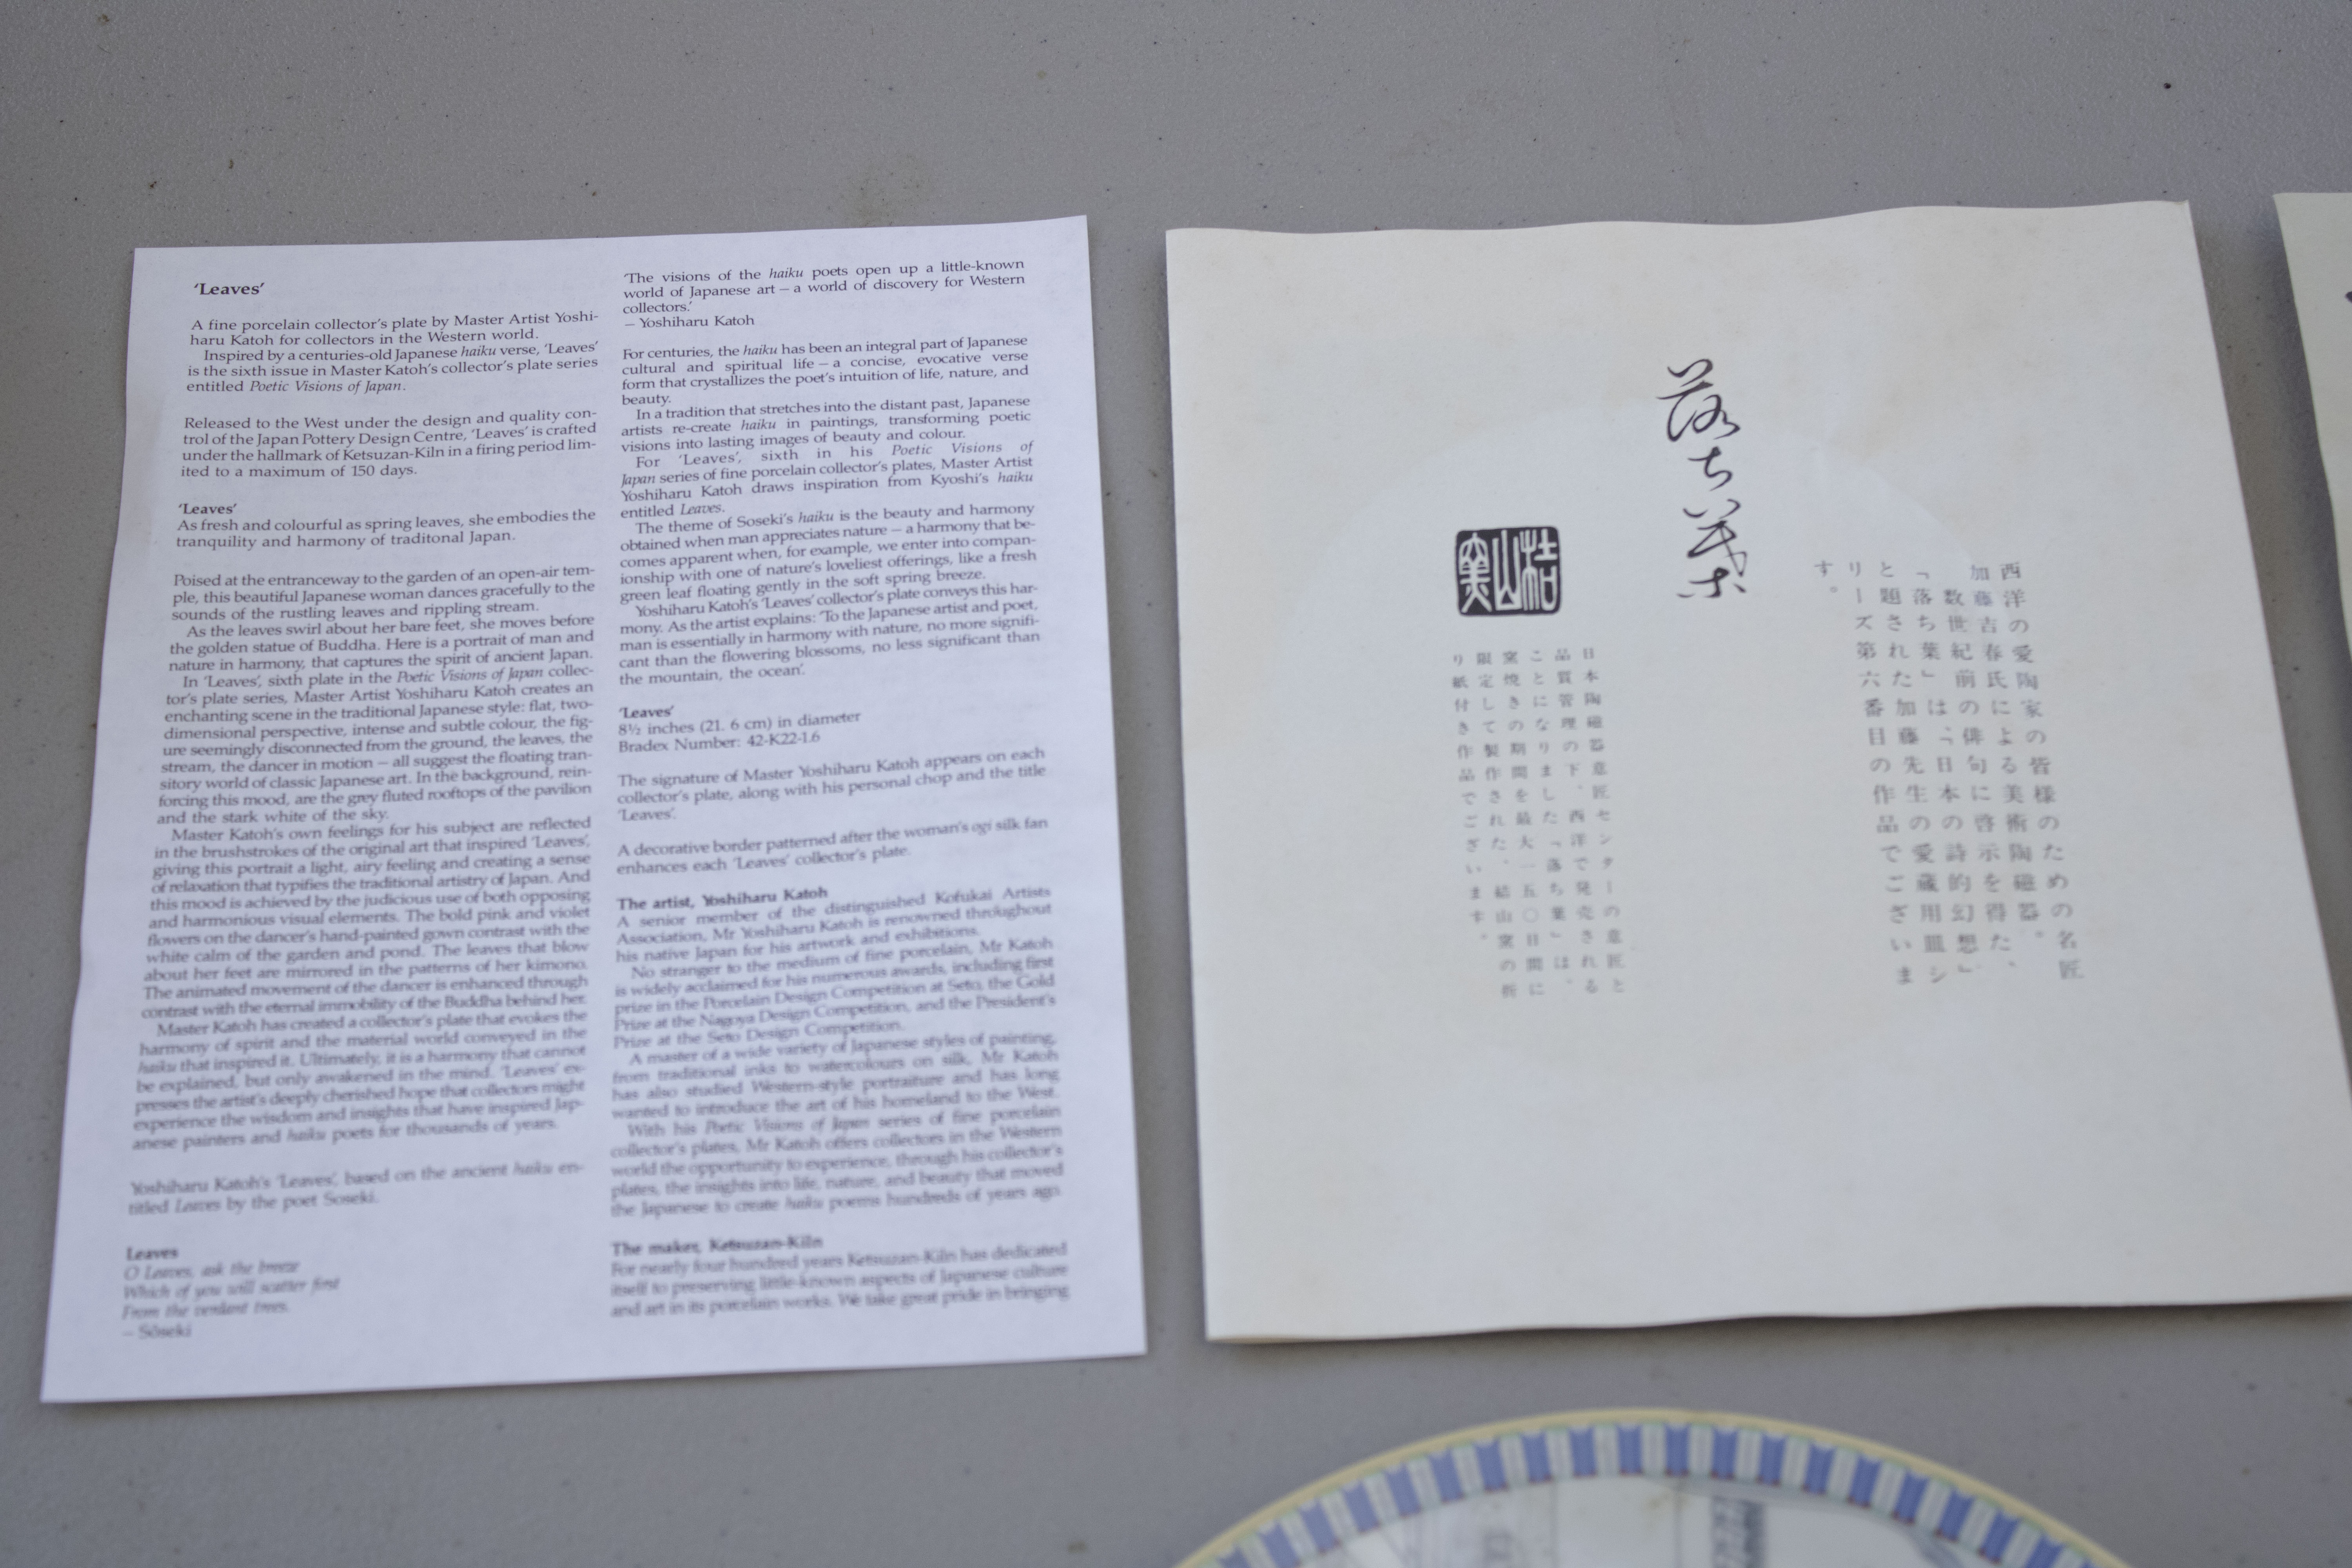 'Leaves'
A fine porcelain collector's plate by Master Artist Yoshi-
haru Katoh for collectors in the Western world.
Inspired by a centuries-old Japanese haiku verse, 'Leaves'
is the sixth issue in Master Katoh's collector's plate series
entitled Poetic Visions of Japan.
Released to the West under the design and quality con-
trol of the Japan Pottery Design Centre, 'Leaves' is crafted
under the hallmark of Ketsuzan-Kiln in a firing period lim-
ited to a maximum of 150 days.
'Leaves'
As fresh and colourful as spring leaves, she embodies the
tranquility and harmony of traditonal Japan.
Poised at the entranceway to the garden of an open-air tem-
ple, this beautiful Japanese woman dances gracefully to the
sounds of the rustling leaves and rippling stream.
As the leaves swirl about her bare feet, she moves before
the golden statue of Buddha. Here is a portrait of man and
nature in harmony, that captures the spirit of ancient Japan.
In 'Leaves', sixth plate in the Poetic Visions of Japan collec-
tor's plate series, Master Artist Yoshiharu Katoh creates an
enchanting scene in the traditional Japanese style: flat, two-
dimensional perspective, intense and subtle colour, the fig-
ure seemingly disconnected from the ground, the leaves, the
stream, the dancer in motion – all suggest the floating tran-
sitory world of classic Japanese art. In the background, rein-
forcing this mood, are the grey fluted rooftops of the pavilion
and the stark white of the sky.
Master Katoh's own feelings for his subject are reflected
in the brushstrokes of the original art that inspired 'Leaves',
giving this portrait a light, airy feeling and creating a sense
of relaxation that typifies the traditional artistry of Japan. And
this mood is achieved by the judicious use of both opposing
and harmonious visual elements. The bold pink and violet
flowers on the dancer's hand-painted gown contrast with the
white calm of the garden and pond. The leaves that blow
about her feet are mirrored in the patterns of her kimono.
The animated movement of the dancer is enhanced through
contrast with the eternal immobility of the Buddha behind her.
Master Katoh has created a collector's plate that evokes the
harmony of spirit and the material world conveyed in the
haiku that inspired it. Ultimately, it is a harmony that cannot
be explained, but only awakened in the mind. 'Leaves' ex-
presses the artist's deeply cherished hope that collectors might
experience the wisdom and insights that have inspired Jap-
anese painters and haiku poets for thousands of years.
Yoshiharu Katoh's 'Leaves', based on the ancient haiku en-
titled Leaves by the poet Soseki.
Leaves
O Leaves, ask the breeze
Which of you will scatter first
From the verdant trees.
– Sōseki
'The visions of the haiku poets open up a little-known
world of Japanese art – a world of discovery for Western
collectors.'
– Yoshiharu Katoh
For centuries, the haiku has been an integral part of Japanese
cultural and spiritual life – a concise, evocative verse
form that crystallizes the poet's intuition of life, nature, and
beauty.
In a tradition that stretches into the distant past, Japanese
artists re-create haiku in paintings, transforming poetic
visions into lasting images of beauty and colour.
For 'Leaves', sixth in his Poetic Visions of
Japan series of fine porcelain collector's plates, Master Artist
Yoshiharu Katoh draws inspiration from Kyoshi's haiku
entitled Leaves.
The theme of Soseki's haiku is the beauty and harmony
obtained when man appreciates nature – a harmony that be-
comes apparent when, for example, we enter into compan-
ionship with one of nature's loveliest offerings, like a fresh
green leaf floating gently in the soft spring breeze.
Yoshiharu Katoh's 'Leaves' collector's plate conveys this har-
mony. As the artist explains: 'To the Japanese artist and poet,
man is essentially in harmony with nature, no more signifi-
cant than the flowering blossoms, no less significant than
the mountain, the ocean'.
'Leaves'
8½ inches (21. 6 cm) in diameter
Bradex Number: 42-K22-1.6
The signature of Master Yoshiharu Katoh appears on each
collector's plate, along with his personal chop and the title
'Leaves'.
A decorative border patterned after the woman's ogi silk fan
enhances each 'Leaves' collector's plate.
The artist, Yoshiharu Katoh
A senior member of the distinguished Kofukai Artists
Association, Mr Yoshiharu Katoh is renowned throughout
his native Japan for his artwork and exhibitions.
No stranger to the medium of fine porcelain, Mr Katoh
is widely acclaimed for his numerous awards, including first
prize in the Porcelain Design Competition at Seto, the Gold
Prize at the Nagoya Design Competition, and the President's
Prize at the Seto Design Competition.
A master of a wide variety of Japanese styles of painting,
from traditional inks to watercolours on silk, Mr Katoh
has also studied Western-style portraiture and has long
wanted to introduce the art of his homeland to the West.
With his Poetic Visions of Japan series of fine porcelain
collector's plates, Mr Katoh offers collectors in the Western
world the opportunity to experience, through his collector's
plates, the insights into life, nature, and beauty that moved
the Japanese to create haiku poems hundreds of years ago.
The maker, Ketsuzan-Kiln
For nearly four hundred years Ketsuzan-Kiln has dedicated
itself to preserving little-known aspects of Japanese culture
and art in its porcelain works. We take great pride in bringing
西洋の愛陶家の皆様のための名匠
加藤吉春氏による美術陶磁器。
数世紀前の俳句に啓示を得た、
「落ち葉」は「日本の詩的幻想」
と題された加藤先生の愛蔵用皿シ
リーズ第六番目の作品でございま
す。
落ち葉
桔山窯
日本陶磁器意匠センターの意匠と
品質管理の下、西洋で発売される
ことになりました「落ち葉」は、
窯焼きの期間を最大一五〇日間に
限定して製作された、結山窯の折
り紙付き作品でございます。